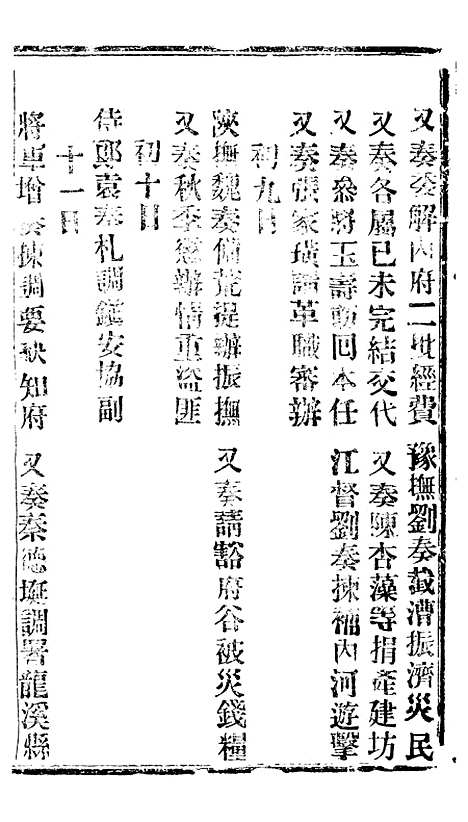 又奏發解內府二批經費　豫撫劉奏截漕振濟災民
又奏各屬已未完結交代　又奏陳杏藻等捐產建坊
又奏參將玉壽勛回本任　江督劉奏揀補內河遊擊
又奏張家璜請革職審辦
初九日
陝撫魏奏備荒提辦振撫　又奏請豁府谷被災錢糧
又奏秋季懲辦情重盜匪
初十日
侍郎袁奏札調鎮安協副
十一日
將軍增奏揀調要缺知府　又奏秦德埏調署龍溪縣